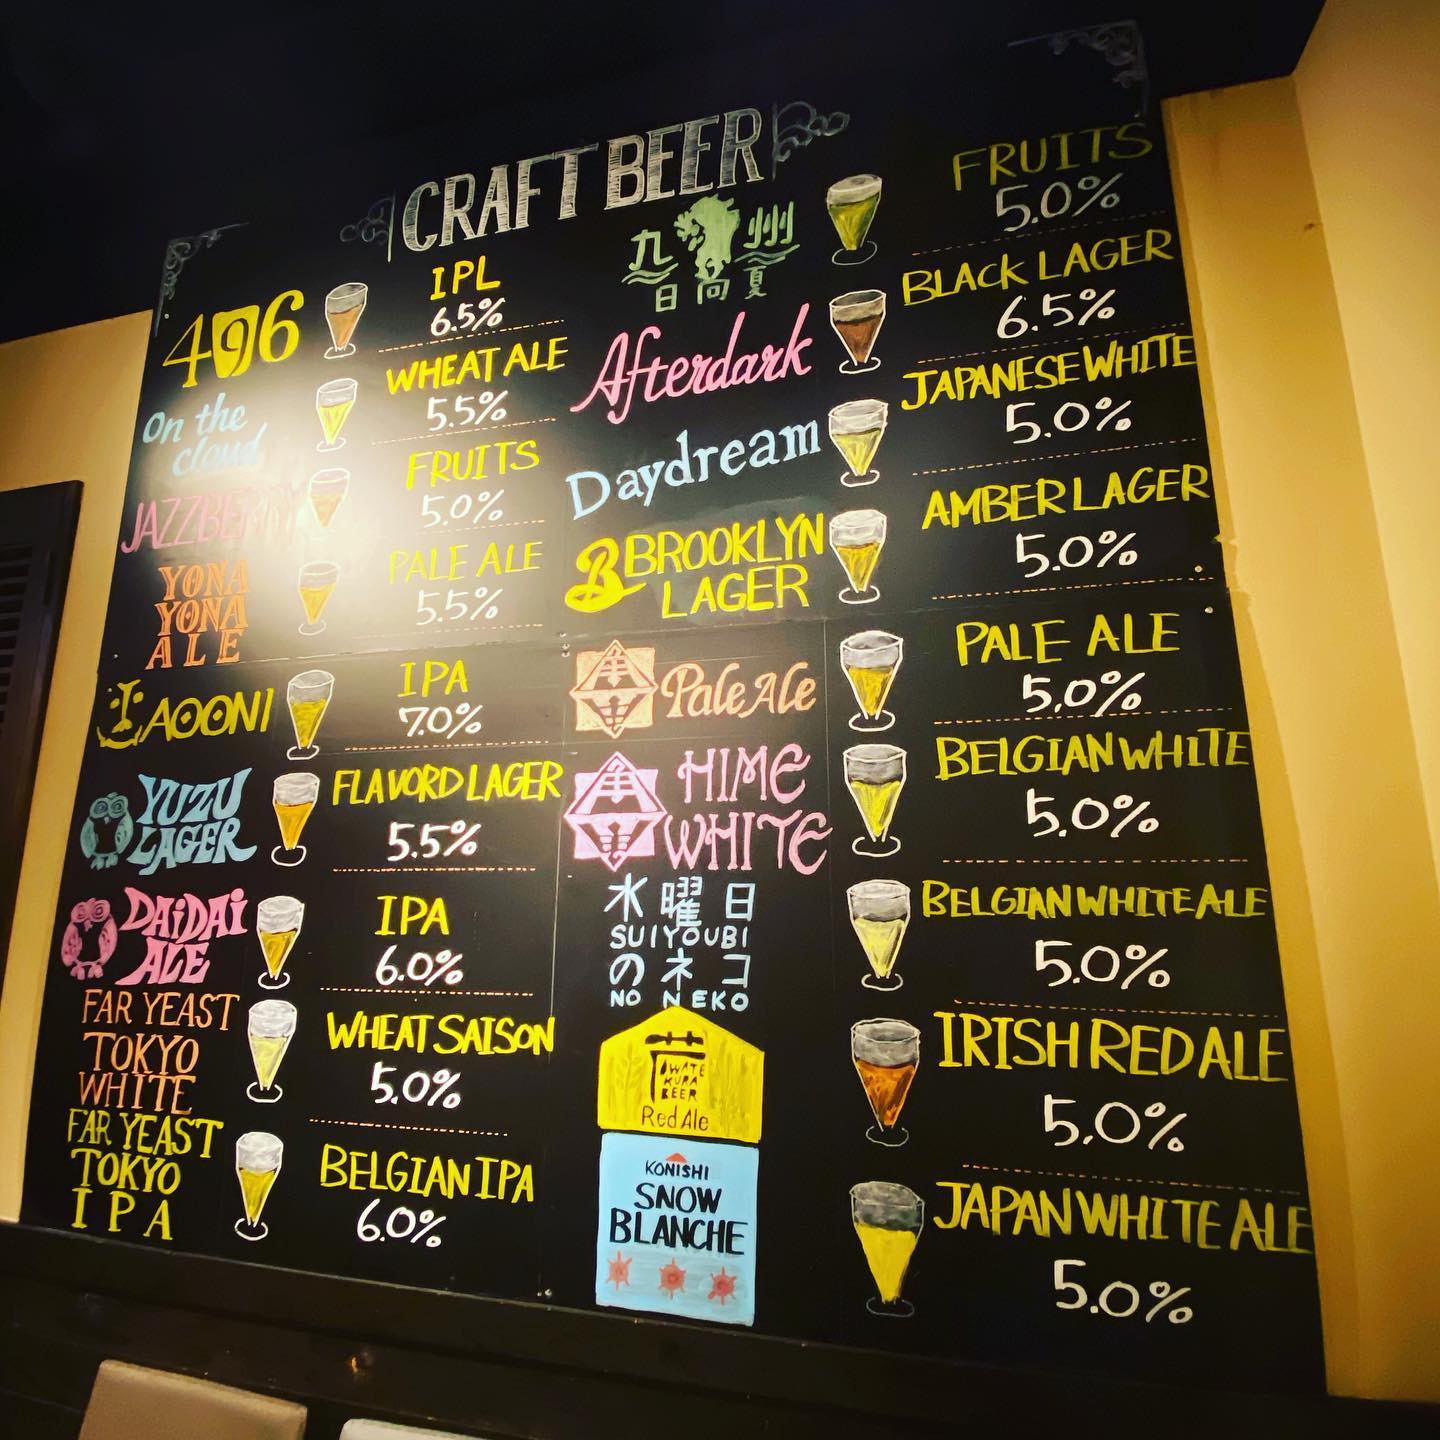 CRAFT BEER
496
IPL
6.5%
On the
cloud
WHEAT ALE
5.5%
JAZZBERRY
FRUITS
5.0%
YONA
YONA
ALE
PALE ALE
5.5%
AOONI
IPA
7.0%
YUZU
LAGER
FLAVORD LAGER
5.5%
DAiDAi
ALE
IPA
6.0%
FAR YEAST
TOKYO
WHITE
WHEAT SAISON
5.0%
FAR YEAST
TOKYO
IPA
BELGIAN IPA
6.0%
九州
日向夏
FRUITS
5.0%
Afterdark
BLACK LAGER
6.5%
Daydream
JAPANESE WHITE
5.0%
B BROOKLYN
LAGER
AMBER LAGER
5.0%
Pale Ale
PALE ALE
5.0%
HIME
WHITE
BELGIAN WHITE
5.0%
水曜日
SUIYOUBI
のネコ
NO NEKO
BELGIAN WHITE ALE
5.0%
OWATE
KURA
BEER
Red Ale
IRISH RED ALE
5.0%
KONISHI
SNOW
BLANCHE
JAPAN WHITE ALE
5.0%